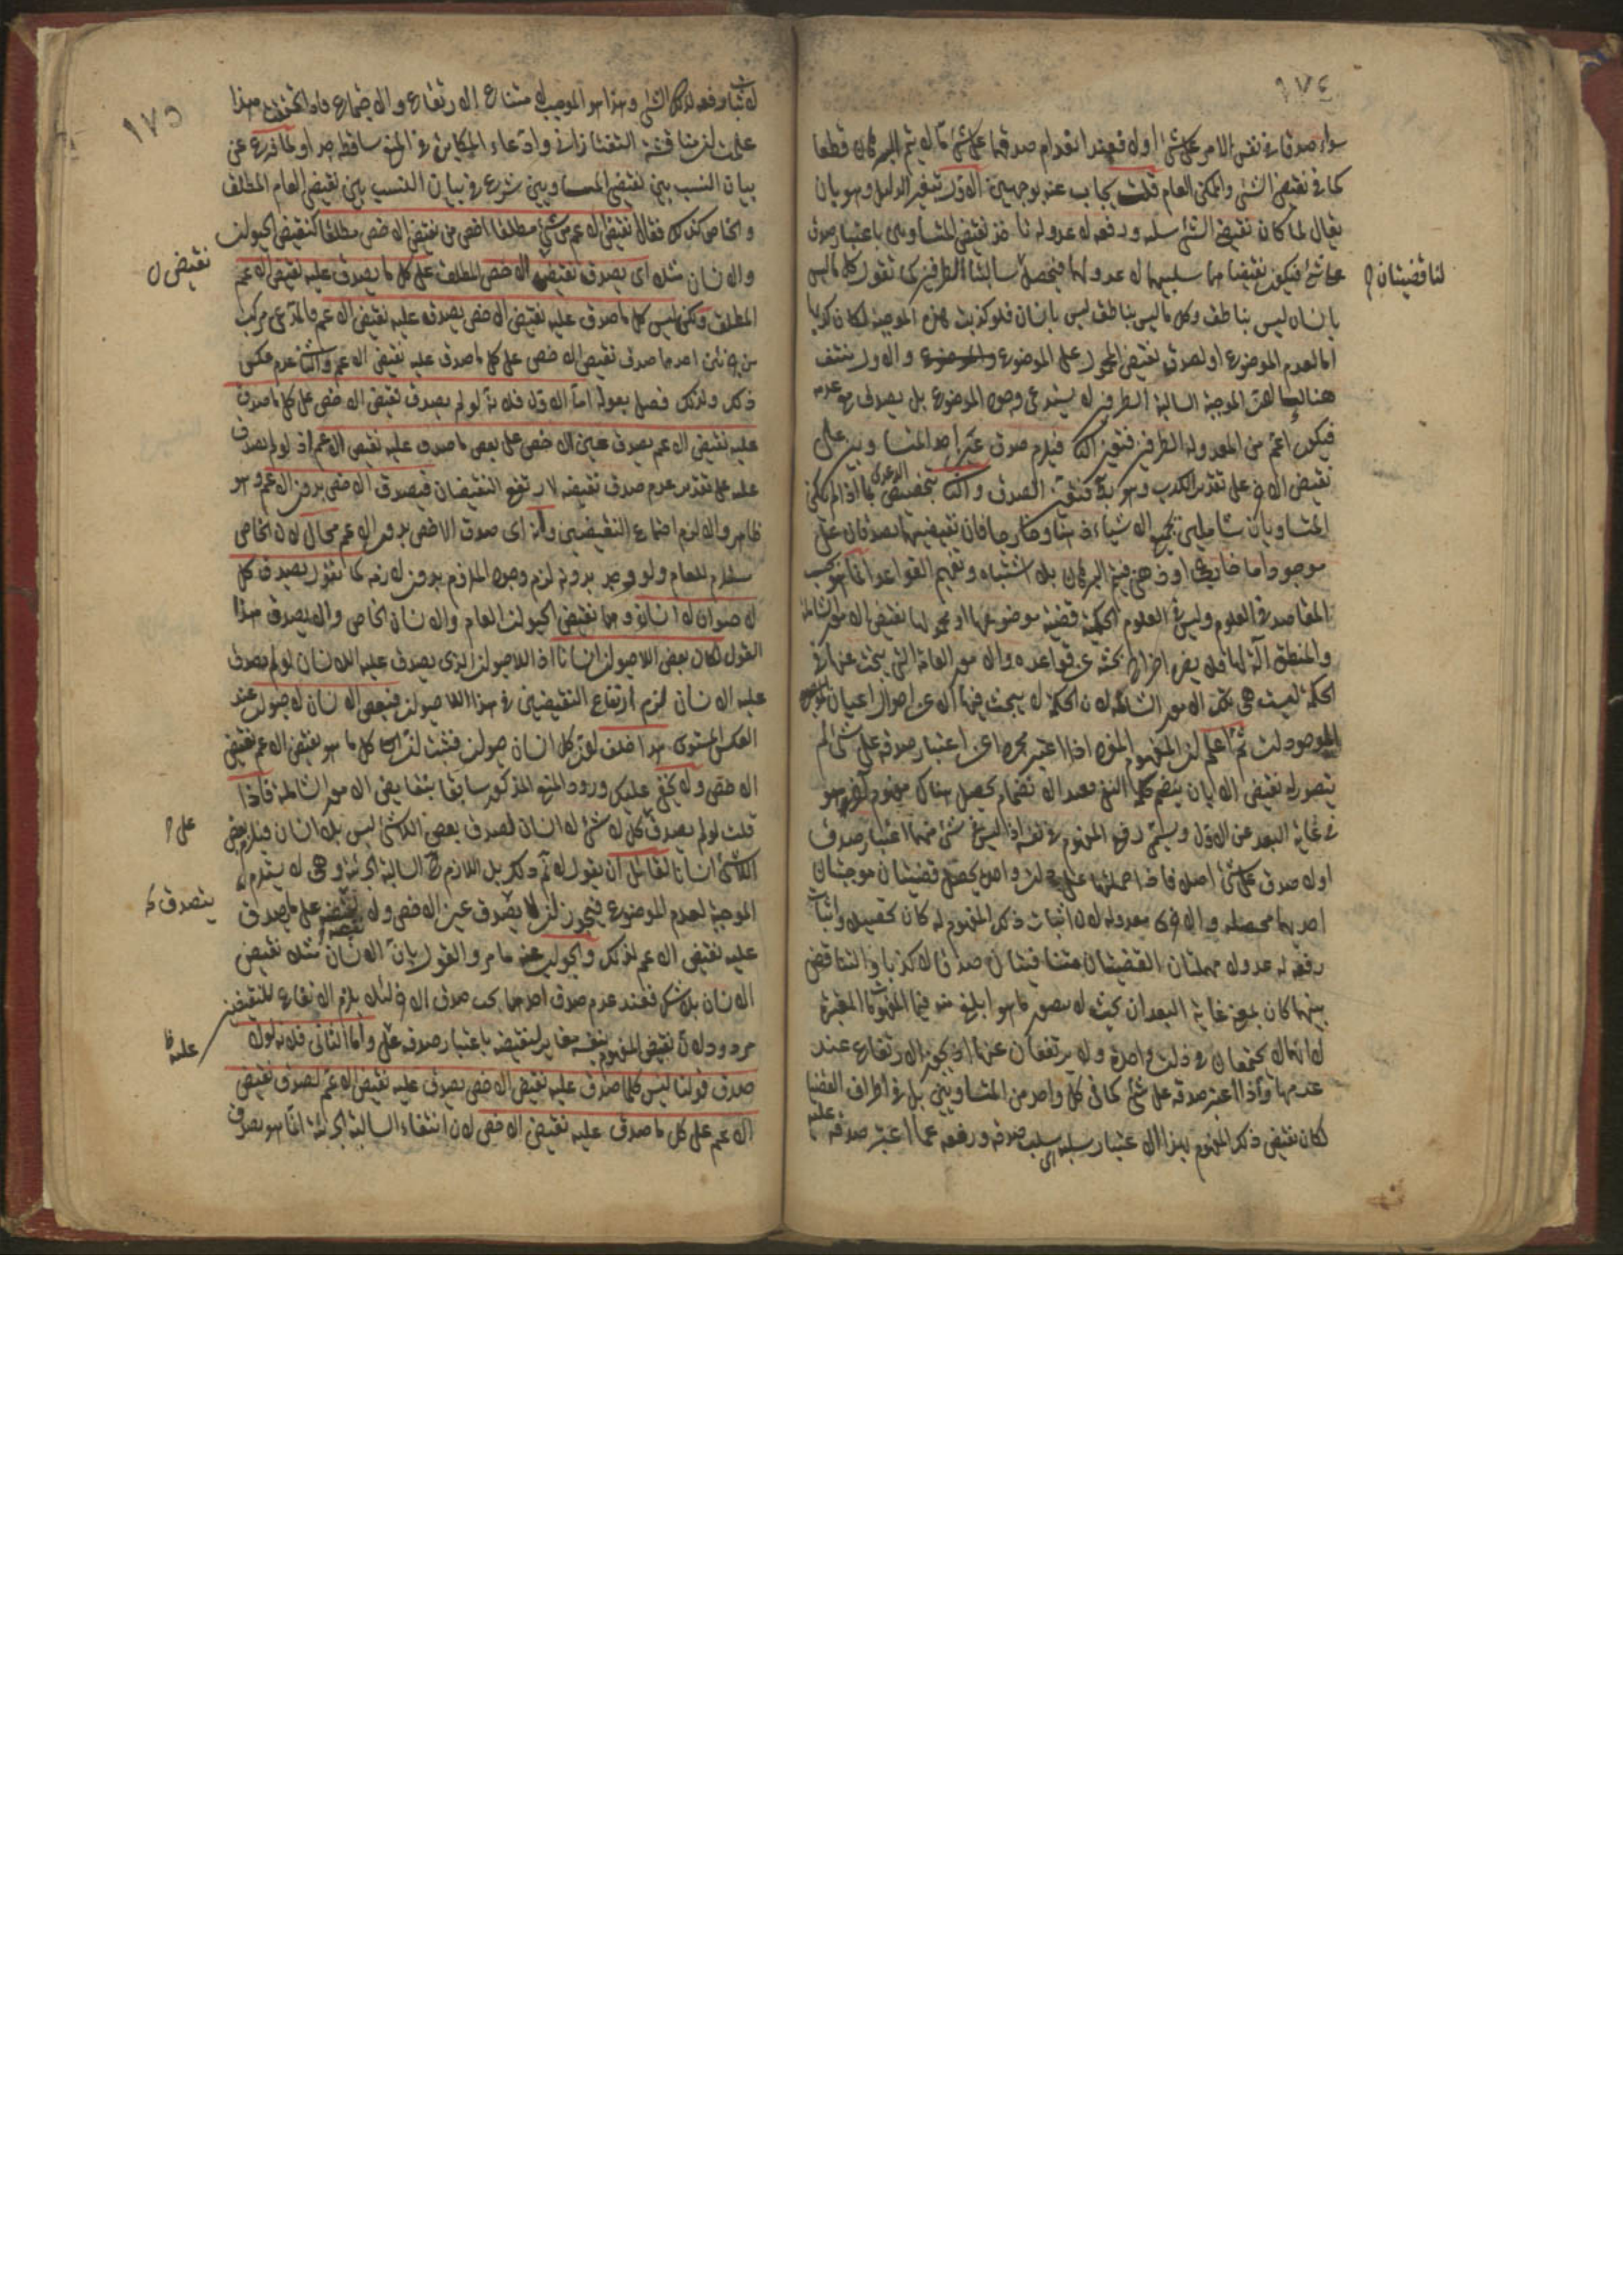 ١٧٤
سواء صدقا في نفس الامر على شئ او لا فعند انعدام صدقهما على شئ ما لا يتم البرهان قطعا
كما في نقيض الشئ والممكن العام قلت يجاب عنه بوجهين الاول تغير الدليل وهو بان
يقال لما كان نقيض الشئ سلبه ورفعه لا عدوله نقيض المتساويين باعتبار صدق
على شئ فيكون نقيضاهما سلبيهما لا عدولهما فيحصل سالبتا الطرفين كما تقول كل ما ليس
لنا قضيتان
بانسان ليس بناطق وكل ما ليس بناطق ليس بانسان فلو كذبت هذه الموجبة لكان كذبها
اما لعدم الموضوع او لصدق نقيض المحمول على الموضوع والاول منتف
هنا لان الموجبة السالبة الطرفين لا يستدعي وجود الموضوع بل يصدق مع عدمه
فيكون اعم من المعدولة الطرفين فتعين الثاني فيلزم صدق عين احد المتساويين على
نقيض الاخر على تقدير الكذب وهو بط فتعين الصدق والثاني تخصيص الدعوى بما اذا لم يكن
المتساويان شاملين لجميع الاشياء ذهنا وخارجا فان نقيضيهما يصدقان على
موجود اما خارجي او ذهني فيتم البرهان بلا اشتباه وتعميم القواعد انما هو بحسب
المقاصد في العلوم وليس في العلوم الحكمية قضية موضوعها او محمولها نقيض الامور الشاملة
والمنطق آلة لها فلا يضر اخراجها عن قواعده والامور العامة التي يبحث عنها في
الحكمة ليست هي تلك الامور الشاملة لان الحكمة لا يبحث فيها الا عن احوال اعيان
الموجودات ثم اعلم ان المفهوم المفرد اذا اعتبر مجردا عن اعتبار صدقه على شئ لم
يتصور له نقيض الا بان ينضم كلمة النفي فبعد الانضمام يحصل هناك مفهوم آخر هو
في غاية البعد عن الاول ويسمى رفع المفهوم في نفسه اذ ليس في شئ منهما اعتبار صدق
او لا صدق على شئ اصلا فاذا حملتهما على ذات واحدة يحصل قضيتان موجبتان
احديهما محصلة والاخرى معدولة لان اثبات ذلك المفهوم له كان تحصيلا واثبات
رفعه له عدولا فهاتان القضيتان متنافيتان صدقا لا كذبا والتناقض
بينهما كان بمعنى غاية البعد ان بحيث لا يتصور ما هو ابلغ منه فيما بين المفهومات المعتبرة
لا انهما لا يجتمعان في ذات واحدة ولا يرتفعان عنها اذ يجوز الارتفاع عند
عدمها واذا اعتبر صدقه على شئ كما في كل واحد من المتساويين بل في اطراف القضايا
لكان نقيض ذلك المفهوم بهذا الاعتبار سلبه اي سلب صدقه ورفعه عما اعتبر صدقه عليه
١٧٥
لا اثبات رفعه لذلك الشئ وهذا هو الموجب لامتناع الارتفاع والاجتماع فاذا تحققت هذا
علمت ان مناقشة التفتازاني وادعاء المكابرة في المنع ساقط جدا ولما فرغ عن
بيان النسب بين نقيضي المتساويين شرع في بيان النسب بين نقيض العام المطلق
والخاص كذلك فقال نقيض الاعم من شئ مطلقا اخص من نقيض الاخص مطلقا كنقيض الحيوان
نقيض
والانسان مثلا اي يصدق نقيض الاخص المطلق على كل ما يصدق عليه نقيض الاعم
المطلق ولكن ليس كل ما صدق عليه نقيض الاخص يصدق عليه نقيض الاعم فالمدعى مركب
من جزئين احدهما صدق نقيض الاخص على كل ما صدق عليه نقيض الاعم والثاني عدم عكس
ذلك ولذلك فصل بقوله اما الاول فلانه لو لم يصدق نقيض الاخص على كل ما صدق
عليه نقيض الاعم يصدق عين الاخص على بعض ما صدق عليه نقيض الاعم اذ لو لم يصدق
عليه على تقدير عدم صدق نقيضه لارتفع النقيضان فيصدق الاخص بدون الاعم وهو
ظاهر والا لزم اجتماع النقيضين وانه اي صدق الاخص بدون الاعم محال لان الخاص
مستلزم للعام ولو وجد بدونه لزم وجود الملزوم بدون لازمه كما تقول يصدق كل
لا حيوان لا انسان وهما نقيض الحيوان العام والانسان الخاص والا يصدق هذا
القول لكان بعض اللاحيوان انسانا اذ اللاحيوان الذي يصدق عليه اللاانسان لو لم يصدق
عليه الانسان لزم ارتفاع النقيضين في هذا اللاحيوان فبعض الانسان لا حيوان عند
العكس المستوي هذا خلف لان كل انسان حيوان فثبت ان كل ما هو نقيض الاعم نقيض
الاخص ولا يخفى عليك ورود المنع المذكور سابقا بنقايض الامور الشاملة فاذا
قلت لو لم يصدق كل لا شئ لا انسان لصدق بعض اللاشئ ليس بلا انسان فيلزم بعض
اللاشئ انسانا لقائل ان يقول لا نم ذلك بل اللازم ح السالبة الجزئية وهي لا يستلزم
الموجبة لعدم الموضوع فيجوز ان لا يصدق عين الاخص ولا نقيضه على ما صدق
عليه نقيض الاعم لذلك والجواب عنه ما مر والقول بان الانسان مثلا نقيض
الانسان بلا شك فعند عدم صدق احدهما يجب صدق الاخر لئلا يلزم الارتفاع للنقيضين
مردود لان نقيض المفهوم بنفسه مغاير لنقيضه باعتبار صدقه على واما الثاني فلانه لولا
صدق قولنا ليس كلما صدق عليه نقيض الاخص يصدق عليه نقيض الاعم لصدق نقيض
الاعم على كل ما صدق عليه نقيض الاخص لان انتفاء السالبة الجزئية انما هو بصدق